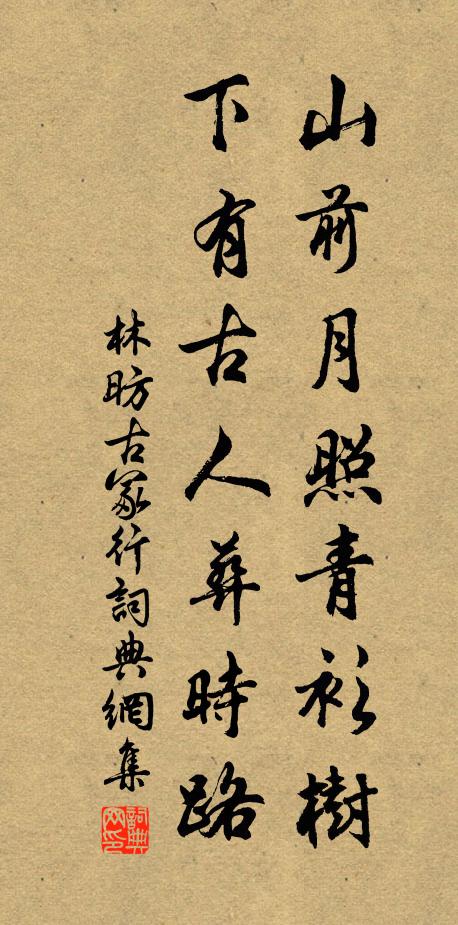 山前月照青衫樹
下有古人葬時路
林昉古冢行詞典網集
詞典網印